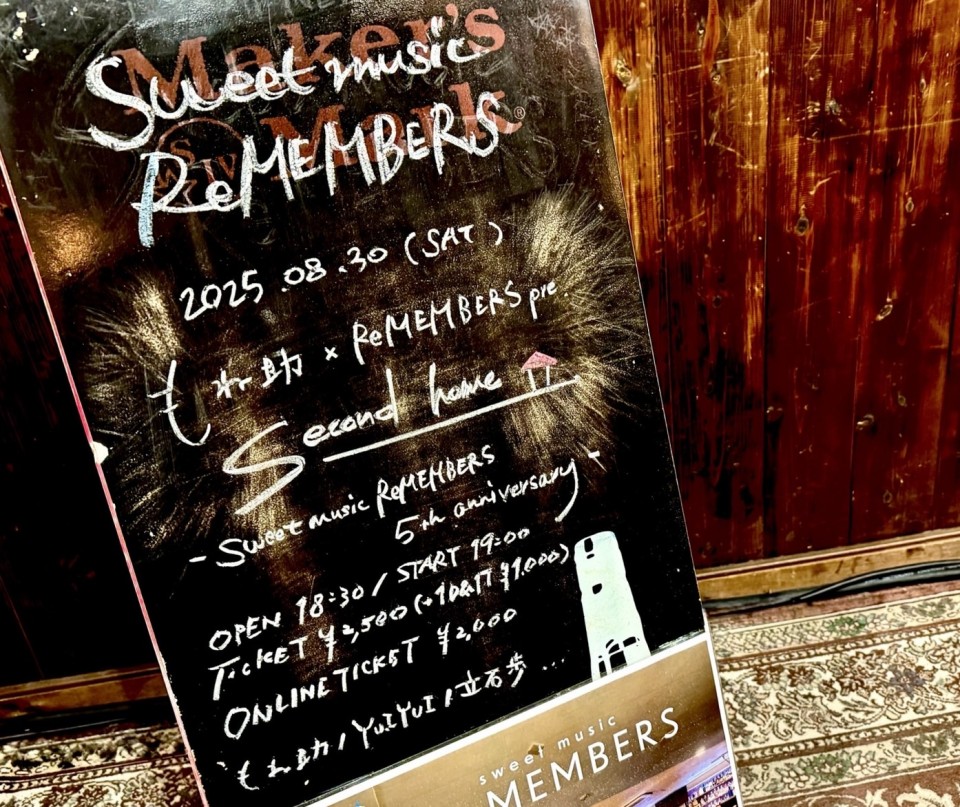 Maker's
Mark®
Sweet music
ReMEMBERS
2025.08.30 (SAT)
もね助 × ReMEMBERS pre.
Second home
- Sweet music ReMEMBERS
5th anniversary -
OPEN 18:30 / START 19:00
TICKET ¥2,500 (+1DRINK ¥1,000)
ONLINE TICKET ¥2,000
もね助 / YUIYUI / 立石歩 ...
sweet music
MEMBERS